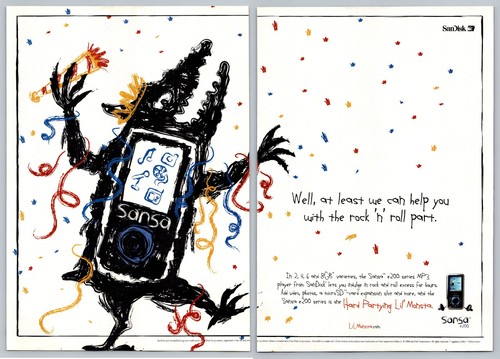 Sansa
SanDisk
Well, at least we can help you
with the rock 'n' roll part.
In 2, 4, 6 and 8GB varieties, the Sansa e200 series MP3
player from SanDisk lets you indulge in rock and roll excess for hours.
Add video, photos, a microSD card expansion slot and more, and the
Sansa e200 series is one Hard Partying Lil' Monsta.
sansa
e200
LILMonsta.com